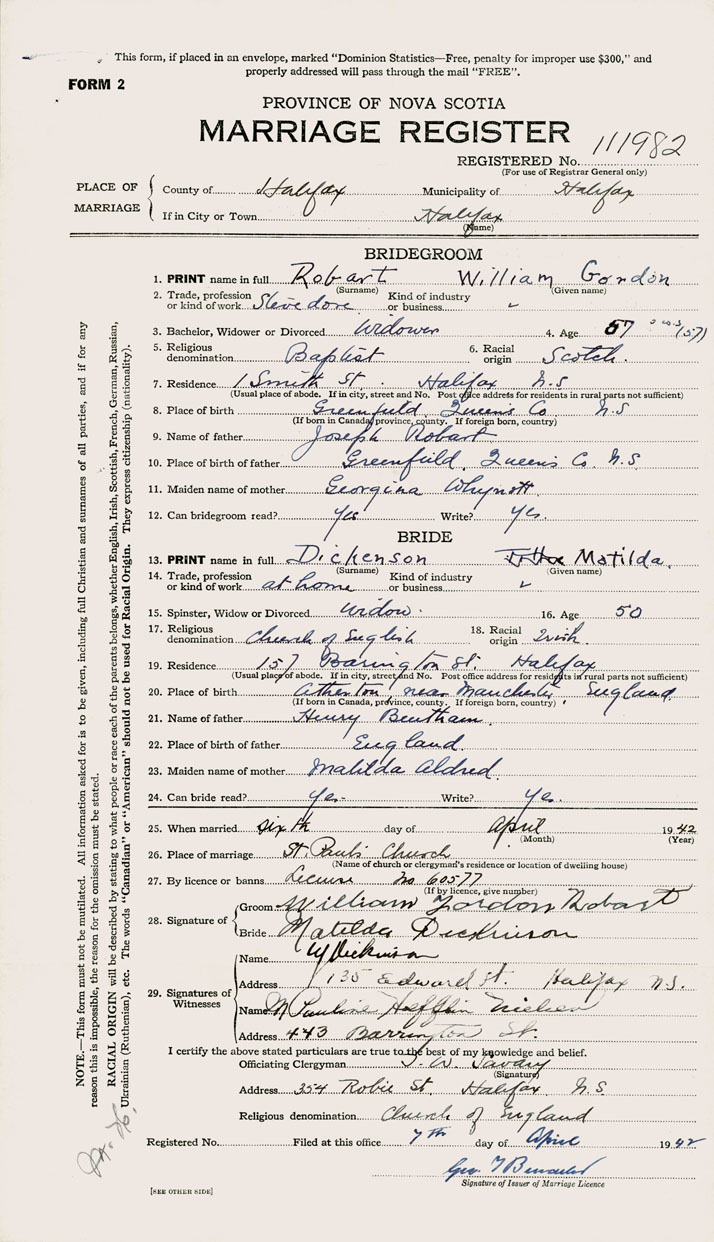 This form, if placed in an envelope, marked "Dominion Statistics—Free, penalty for improper use $300," and
properly addressed will pass through the mail "FREE".
FORM 2
PROVINCE OF NOVA SCOTIA
MARRIAGE REGISTER
REGISTERED No. 111982
(For use of Registrar General only)
PLACE OF MARRIAGE
County of Halifax Municipality of Halifax
If in City or Town Halifax
(Name)
BRIDEGROOM
1. PRINT name in full Robart William Gordon
(Surname) (Given name)
2. Trade, profession or kind of work Stevedore Kind of industry or business "
3. Bachelor, Widower or Divorced Widower 4. Age 57 (57)
5. Religious denomination Baptist 6. Racial origin Scotch.
7. Residence 1 Smith St. Halifax N.S
(Usual place of abode. If in city, street and No. Post office address for residents in rural parts not sufficient)
8. Place of birth Greenfield, Queens Co N.S
(If born in Canada, province, county. If foreign born, country)
9. Name of father Joseph Robart
10. Place of birth of father Greenfield, Queens Co. N.S.
11. Maiden name of mother Georgina Whynott.
12. Can bridegroom read? Yes Write? Yes.
BRIDE
13. PRINT name in full Dickenson Matilda.
(Surname) (Given name)
14. Trade, profession or kind of work at home Kind of industry or business "
15. Spinster, Widow or Divorced Widow. 16. Age 50
17. Religious denomination Church of English 18. Racial origin Irish
19. Residence 157 Barington St. Halifax
(Usual place of abode. If in city, street and No. Post office address for residents in rural parts not sufficient)
20. Place of birth Atherton, near Manchester, England.
(If born in Canada, province, county. If foreign born, country)
21. Name of father Henry Bentham.
22. Place of birth of father England.
23. Maiden name of mother Matilda Aldred.
24. Can bride read? Yes- Write? Yes.
25. When married sixth day of April 1942
(Month) (Year)
26. Place of marriage St. Paul's Church
(Name of church or clergyman's residence or location of dwelling house)
27. By licence or banns License No 60577
(If by licence, give number)
28. Signature of
Groom William Gordon Robart
Bride Matilda Dickinson
29. Signatures of Witnesses
Name W Dickinson
Address 135 Edward St. Halifax N.S.
Name M Pauline Nielsen
Address 443 Barrington St.
I certify the above stated particulars are true to the best of my knowledge and belief.
Officiating Clergyman T. W. Savary
(Signature)
Address 354 Robie St. Halifax N.S
Religious denomination Church of England
Registered No. Filed at this office 7th day of April 1942
Geo
Signature of Issuer of Marriage Licence
[SEE OTHER SIDE]
NOTE.—This form must not be mutilated. All information asked for is to be given, including full Christian and surnames of all parties, and if for any
reason this is impossible, the reason for the omission must be stated.
RACIAL ORIGIN will be described by stating to what people or race each of the parents belongs, whether English, Irish, Scottish, French, German, Russian,
Ukrainian (Ruthenian), etc. The words "Canadian" or "American" should not be used for Racial Origin. They express citizenship (nationality).